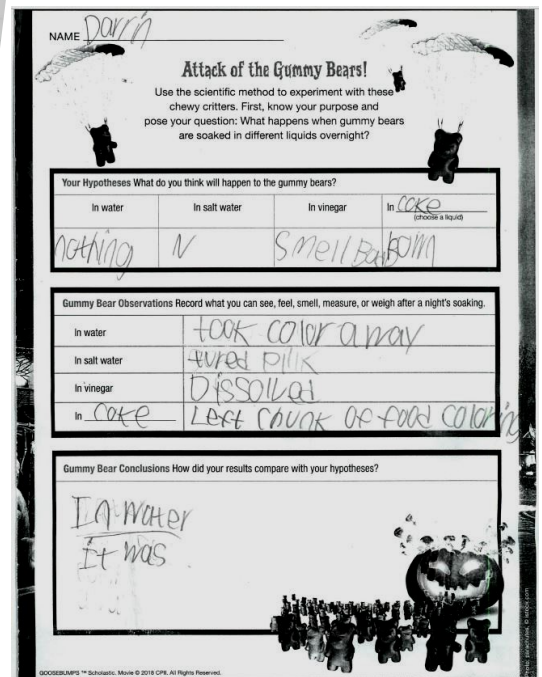 NAME Darrin
Attack of the Gummy Bears!
Use the scientific method to experiment with these
chewy critters. First, know your purpose and
pose your question: What happens when gummy bears
are soaked in different liquids overnight?
Your Hypotheses What do you think will happen to the gummy bears?
In water In salt water In vinegar In coke
(choose a liquid)
nothing N Smell Bad
Gummy Bear Observations Record what you can see, feel, smell, measure, or weigh after a night's soaking.
In water took color away
In salt water tured pink
In vinegar Dissolled
In coke Left chunk of food coloring
Gummy Bear Conclusions How did your results compare with your hypotheses?
In water
it was
GOOSEBUMPS ™ Scholastic. Movie © 2018 CPII. All Rights Reserved.
Photo: parachutes, © istock.com